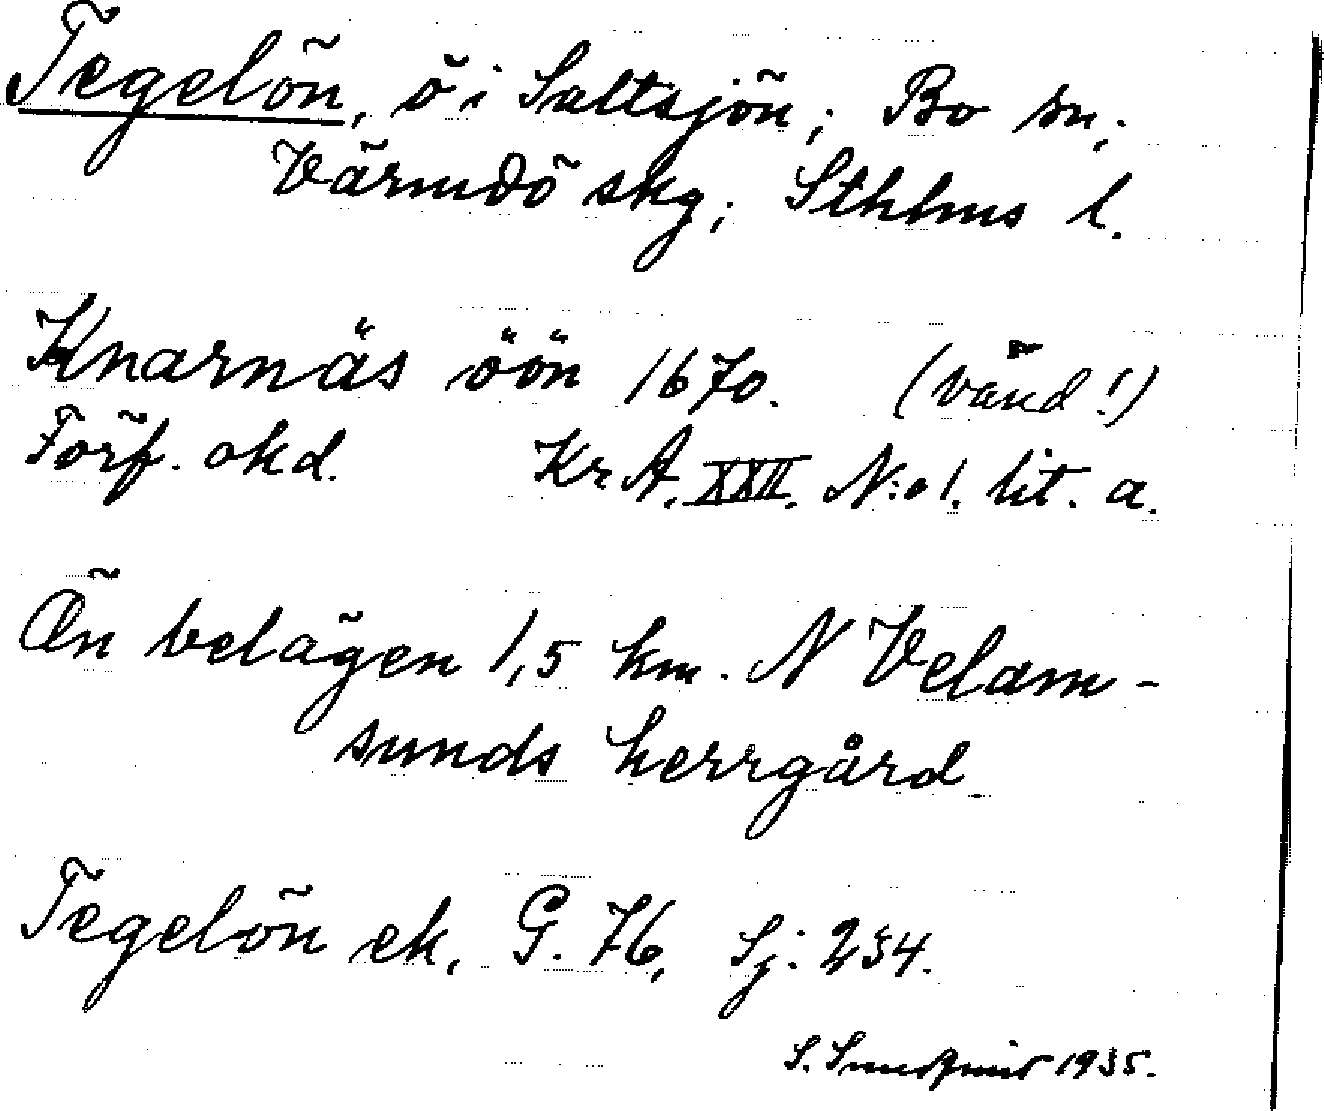 Tegelön, ö i Saltsjön; Bo sn;
Värmdö skg; Sthlms l.
Knarnäs öön 1670. (vänd!)
Förf. okd. Kr. A. XXII. N:o 1. lit. a.
Ön belägen 1,5 km. N Velam-
sunds herrgård
Tegelön ek. G. 76, Sj: 234.
S. Sundqvist 1935.